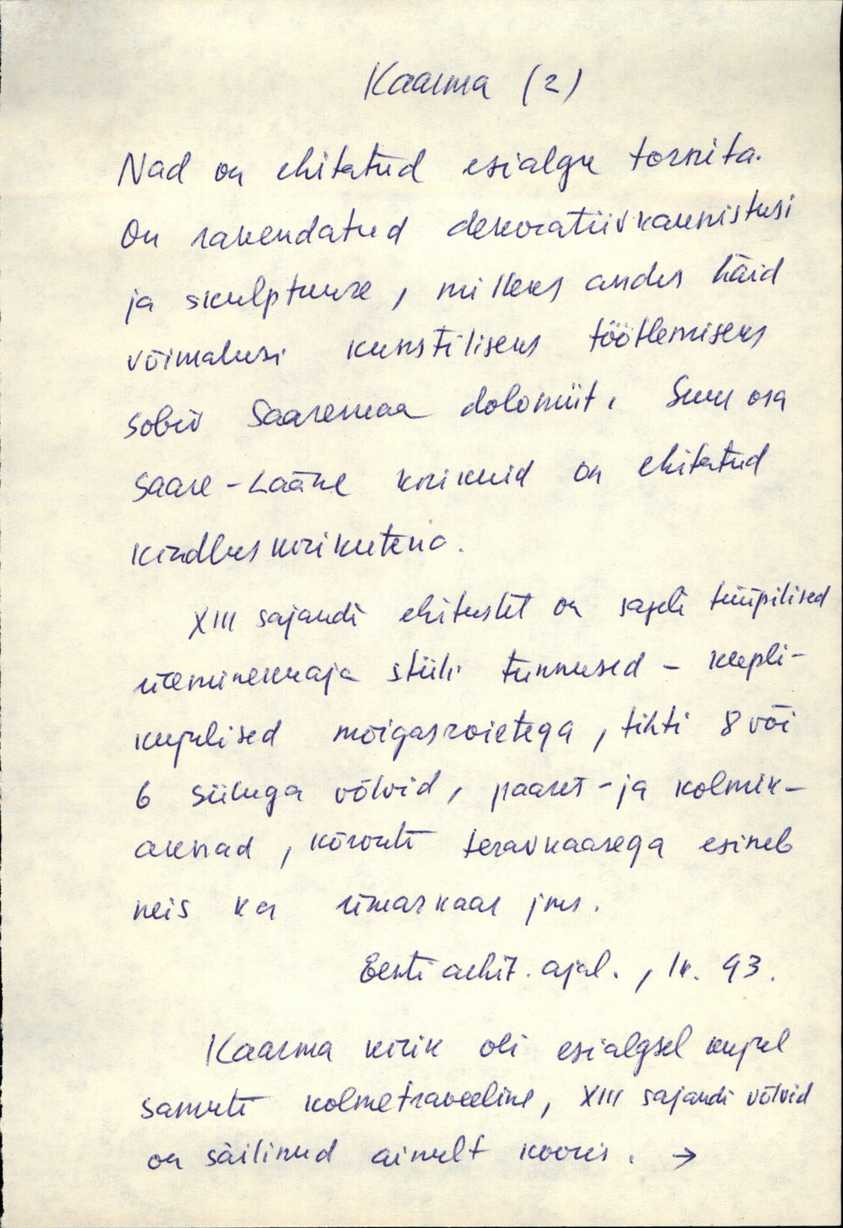 Kaarma (2)
Nad on ehitatud esialgu tornita.
On rakendatud dekoratiivkaunistusi
ja skulptuure, milleks andis häid
võimalusi kunstiliseks töötlemiseks
sobiv Saaremaa dolomiit. Suur osa
Saare-Lääne kirikuid on ehitatud
kindluskirikutena.
XIII sajandi ehitustel on sageli tüüpilised
üleminekuaja stiili tunnused - kupli-
kujulised mõigasroietega, tihti 8 või
6 siiluga võlvid, paaris- ja kolmik-
aknad, kõrvuti teravkaarega esineb
neis ka ümarkaar jms.
Eesti arhit. ajal., lk. 93.
Kaarma kirik oli esialgsel kujul
samuti kolmetraveeline, XIII sajandi võlvid
on säilinud ainult kooris. →